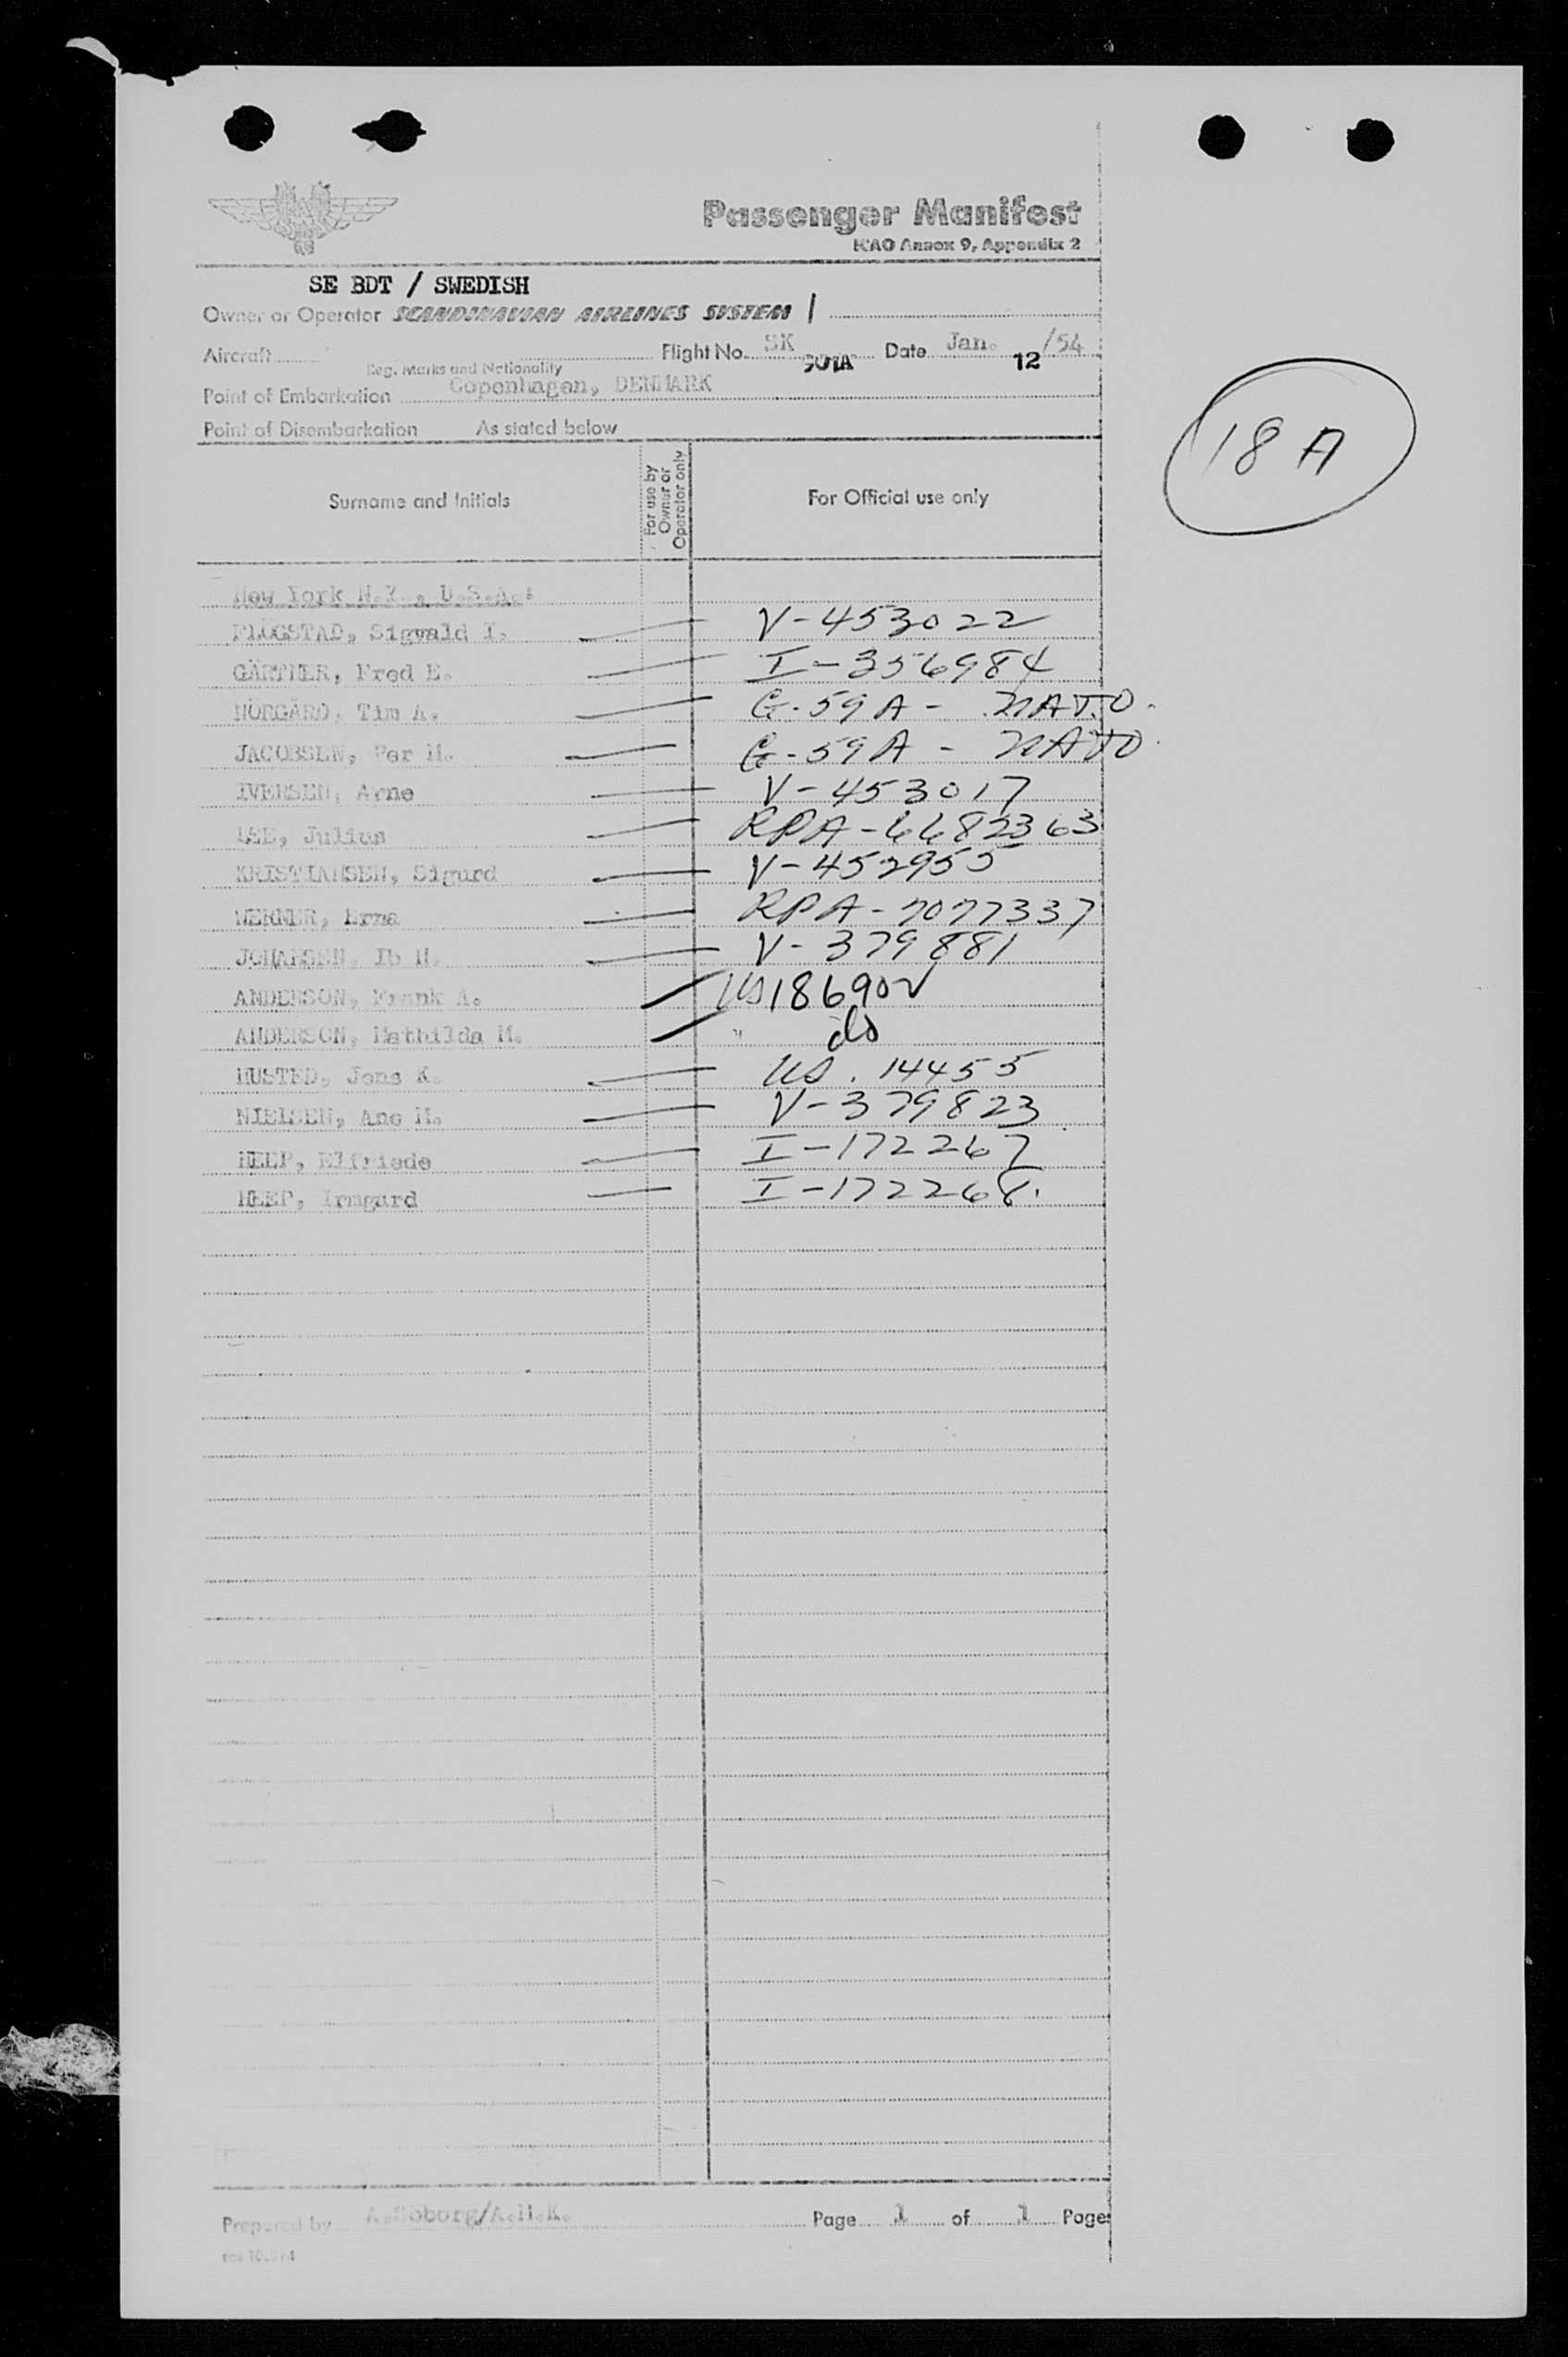 Passenger Manifest
ICAO Annex 9, Appendix 2
SE BDT / SWEDISH
Owner or Operator SCANDINAVIAN AIRLINES SYSTEM
Aircraft Flight No. SK 901A Date Jan. 12/54
Reg. Marks and Nationality
Point of Embarkation Copenhagen, DENMARK
Point of Disembarkation As stated below
18 A
Surname and Initials For use by Owner or Operator only For Official use only
New York N.Y., U.S.A.:
FLOGSTAD, Sigvald I. V-453022
GÄRTNER, Fred E. I-356984
NÖRGÅRD, Tim A. G-59A - NATO.
JACOBSEN, Per H. G-59A - NATO.
IVERSEN, Arne V-453017
LEE, Julius RPA-6682363
KRISTIANSEN, Sigurd V-452955
WERNER, Erna RPA-7077337
JOHANSEN, Ib H. V-379881
ANDERSON, Frank A. US 18690
ANDERSON, Mathilda M. " do
HUSTED, Jens K. US. 14455
NIELSEN, Ane M. V-379823
HEEP, Elfriede I-172267
HEEP, Irmgard I-172268.
Prepared by /A.H.K. Page 1 of 1 Pages